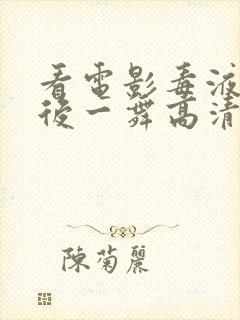 看電影毒液
後一舞高清
陳菊麗